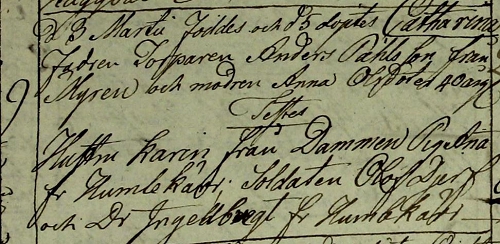 d 3 Martii föddes och d 5 döptes Catharina
Fadren Torparen Anders Pahlsson från
Myren och modren Anna Olsdoter 40 årig
Testes
Hustru Karin från Dammen Pig Stna
fr Humlekärr. Soldaten Olof Durf
och Dr Ingelbregt fr Humlekärr